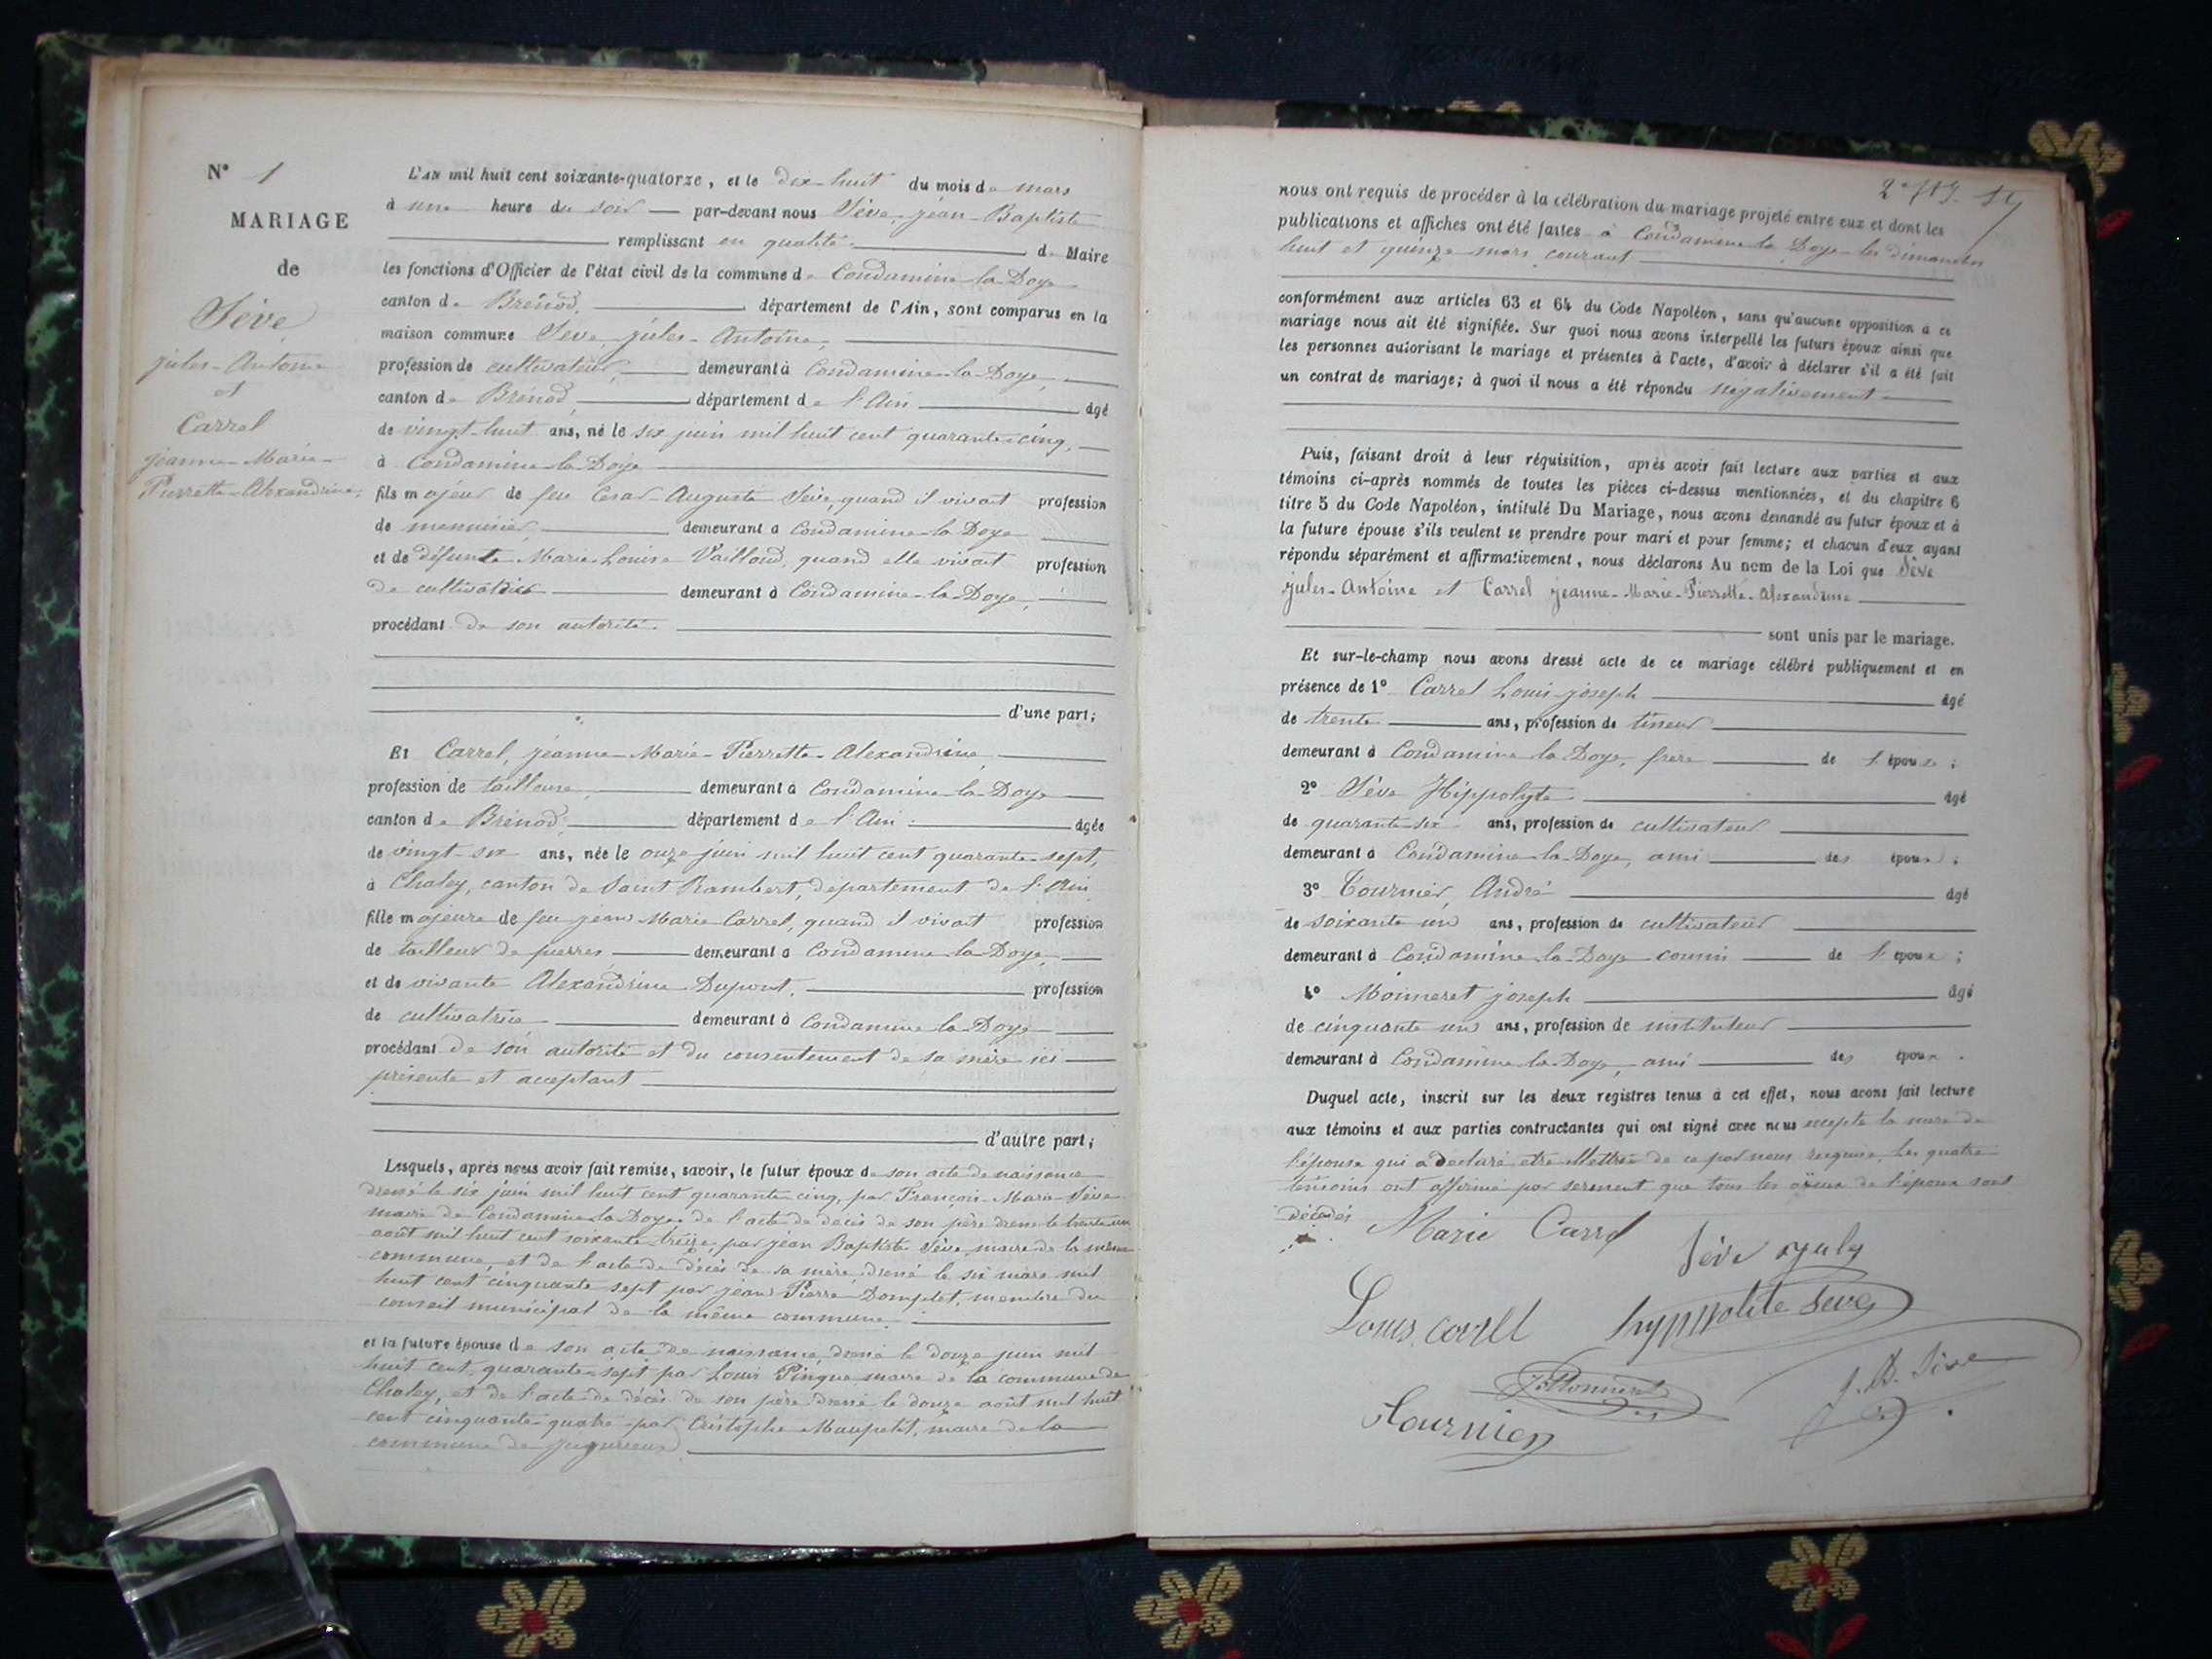 N° 1
MARIAGE
de
Sève
jules-Antoine
et
Carrel
jeanne-Marie-
Pierrette-Alexandrine.
L'AN mil huit cent soixante-quatorze, et le dix-huit du mois de mars
à une heure du soir par-devant nous Sève, jean-Baptiste
remplissant en qualité de Maire
les fonctions d'Officier de l'état civil de la commune de Condamine-la-Doye
canton de Brénod, département de l'Ain, sont comparus en la
maison commune Sève, jules-Antoine,
profession de cultivateur, demeurant à Condamine-la-Doye,
canton de Brénod, département de l'Ain âgé
de vingt-huit ans, né le six juin mil huit cent quarante-cinq,
à Condamine-la-Doye
fils majeur de feu César-Auguste Sève, quand il vivait profession
de menuisier, demeurant à Condamine-la-Doye
et de défunte Marie-Louise Vailloud, quand elle vivait profession
de cultivatrice demeurant à Condamine-la-Doye,
procédant de son autorité.
d'une part;
Et Carrel, jeanne-Marie-Pierrette-Alexandrine,
profession de tailleuse, demeurant à Condamine-la-Doye
canton de Brénod, département de l'Ain âgée
de vingt-six ans, née le onze juin mil huit cent quarante-sept,
à Chaley, canton de Saint Rambert, département de l'Ain
fille majeure de feu jean Marie Carrel, quand il vivait profession
de tailleur de pierres demeurant à Condamine-la-Doye,
et de vivante Alexandrine Dupont, profession
de cultivatrice demeurant à Condamine-la-Doye
procédant de son autorité et du consentement de sa mère ici
présente et acceptant
d'autre part;
Lesquels, après nous avoir fait remise, savoir, le futur époux de son acte de naissance
dressé le six juin mil huit cent quarante cinq, par François-Marie Sève
maire de Condamine-la-Doye, de l'acte de décès de son père dressé le trente un
août mil huit cent soixante-treize, par jean Baptiste Sève, maire de la même
commune, et de l'acte de décès de sa mère, dressé le six mars mil
huit cent cinquante sept par jean Pierre Domplet, membre du
conseil municipal de la même commune.
et la future épouse de son acte de naissance, dressé le douze juin mil
huit cent quarante-sept par Louis Pingue maire de la commune de
Chaley, et de l'acte de décès de son père dressé le douze août mil huit
cent cinquante-quatre par Cristophe Maupetit, maire de la
commune de jujurieux.
nous ont requis de procéder à la célébration du mariage projeté entre eux et dont les
publications et affiches ont été faites à Condamine la Doye les dimanches
huit et quinze mars courant
conformément aux articles 63 et 64 du Code Napoléon, sans qu'aucune opposition à ce
mariage nous ait été signifiée. Sur quoi nous avons interpellé les futurs époux ainsi que
les personnes autorisant le mariage et présentes à l'acte, d'avoir à déclarer s'il a été fait
un contrat de mariage; à quoi il nous a été répondu négativement
Puis, faisant droit à leur réquisition, après avoir fait lecture aux parties et aux
témoins ci-après nommés de toutes les pièces ci-dessus mentionnées, et du chapitre 6
titre 5 du Code Napoléon, intitulé Du Mariage, nous avons demandé au futur époux et à
la future épouse s'ils veulent se prendre pour mari et pour femme; et chacun d'eux ayant
répondu séparément et affirmativement, nous déclarons Au nom de la Loi que Sève
jules-Antoine et Carrel jeanne-Marie-Pierrette-Alexandrine
sont unis par le mariage.
Et sur-le-champ nous avons dressé acte de ce mariage célébré publiquement et en
présence de 1° Carrel Louis-joseph âgé
de trente ans, profession de tisseur
demeurant à Condamine la Doye, frère de l'épouse;
2° Sève Hippolyte âgé
de quarante-six ans, profession de cultivateur
demeurant à Condamine-la-Doye, ami des époux;
3° Tournier, André âgé
de soixante un ans, profession de cultivateur
demeurant à Condamine-la-Doye cousin de l'époux;
4° Monneret joseph âgé
de cinquante un ans, profession de instituteur
demeurant à Condamine-la-Doye, ami des époux.
Duquel acte, inscrit sur les deux registres tenus à cet effet, nous avons fait lecture
aux témoins et aux parties contractantes qui ont signé avec nous excepté la mère de
l'épouse qui a déclaré être illettrée de ce par nous requise. Les quatre
témoins ont affirmé par serment que tous les aïeux de l'époux sont
décédés
Marie Carrel
Sève july
Louis Carrel
hyppolite Seve
JMonneret
J. B. Sève
Tournier